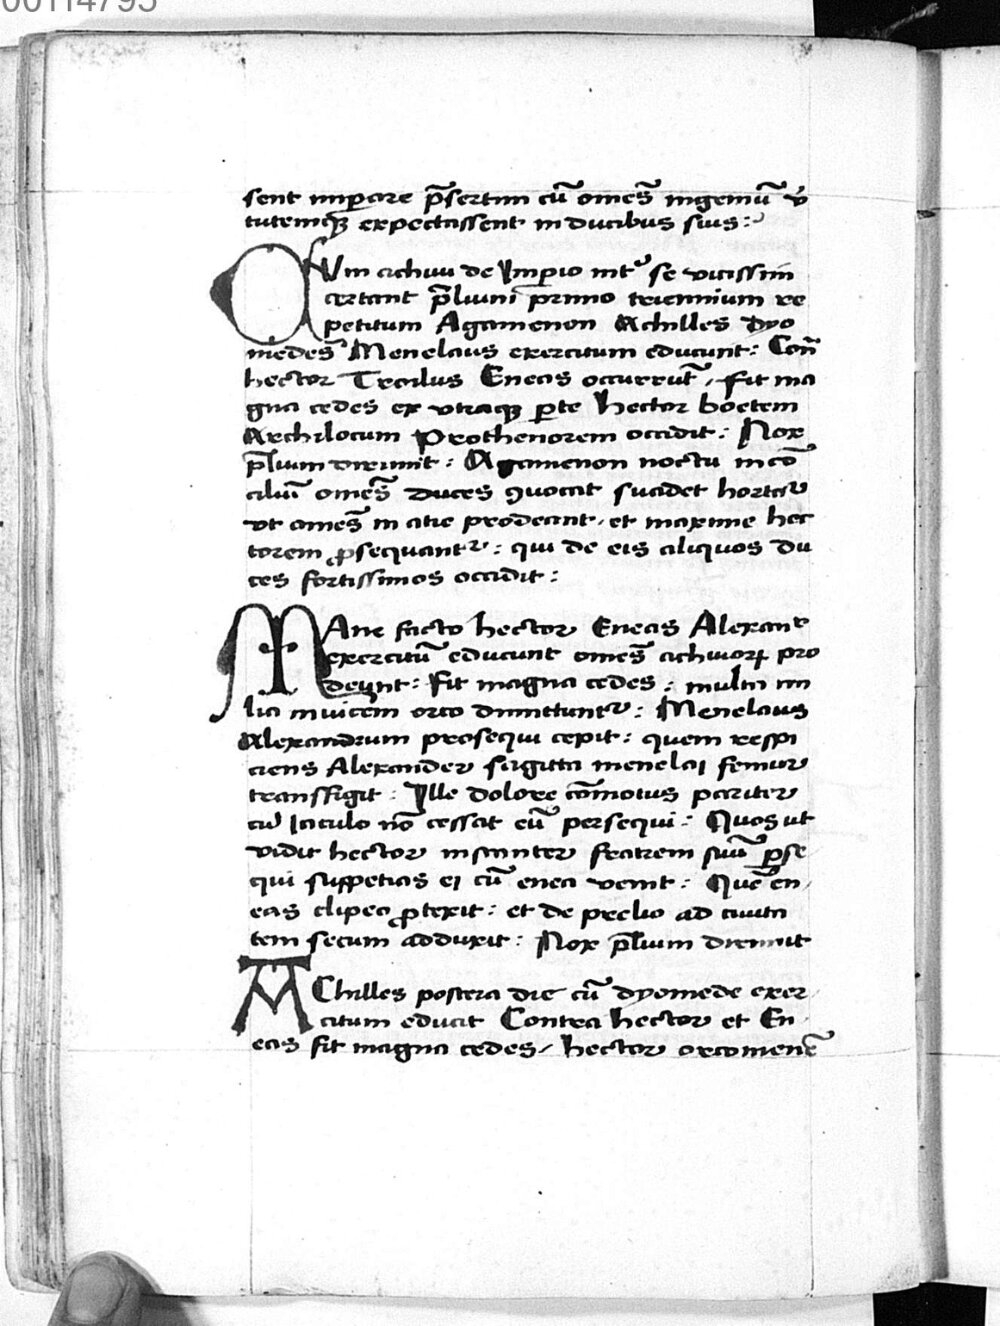 00114795
sent imꝑare p̄sertim cū om̄es ingeniū v̓
tutemqꝫ expectassent in ducibus suis :
DUm achiui de Imperio int̓ se vicissim
certant p̄lium primo triennium re
petitum Agamenon Achilles dyo
medes Menelaus exercitum educunt : Con̄
hector Troilus Eneas occurrūt , fit ma
gna cedes ex vtraqꝫ ꝑte hector boetem
Archilocum Prothenorem occidit : Nox
p̄lium dirimit : Agamenon noctu in cō
ciliū om̄es duces ꝯuocat suadet hortat᷑
vt om̄es in acie prodeant , et maxime hec
torem ꝓsequant᷑ : qui de eis aliquos du
ces fortissimos occidit :
MAne facto hector Eneas Alexand̓
exercitū educunt om̄es achiuoꝝ pro
deunt : fit magna cedes : multa mi
lia inuicem orco dimittunt᷑ : Menelaus
Alexandrum prosequi cepit : quem respi
ciens Alexander sagitta menelai femur
transfigit : Ille dolore cōmotus pariter
cū Iaculo nō cessat eū persequi : Quos ut
vidit hector instanter fratrem suū ꝑse
qui suppetias ei cū enea venit : Quē en
eas clipeo ꝓtexit : et de prelio ad ciuita
tem secum adduxit : Nox p̄lium diremit
AChilles postera die cū dyomede exer
citum educit Contra hector et En
eas fit magna cedes , hector orcomenē